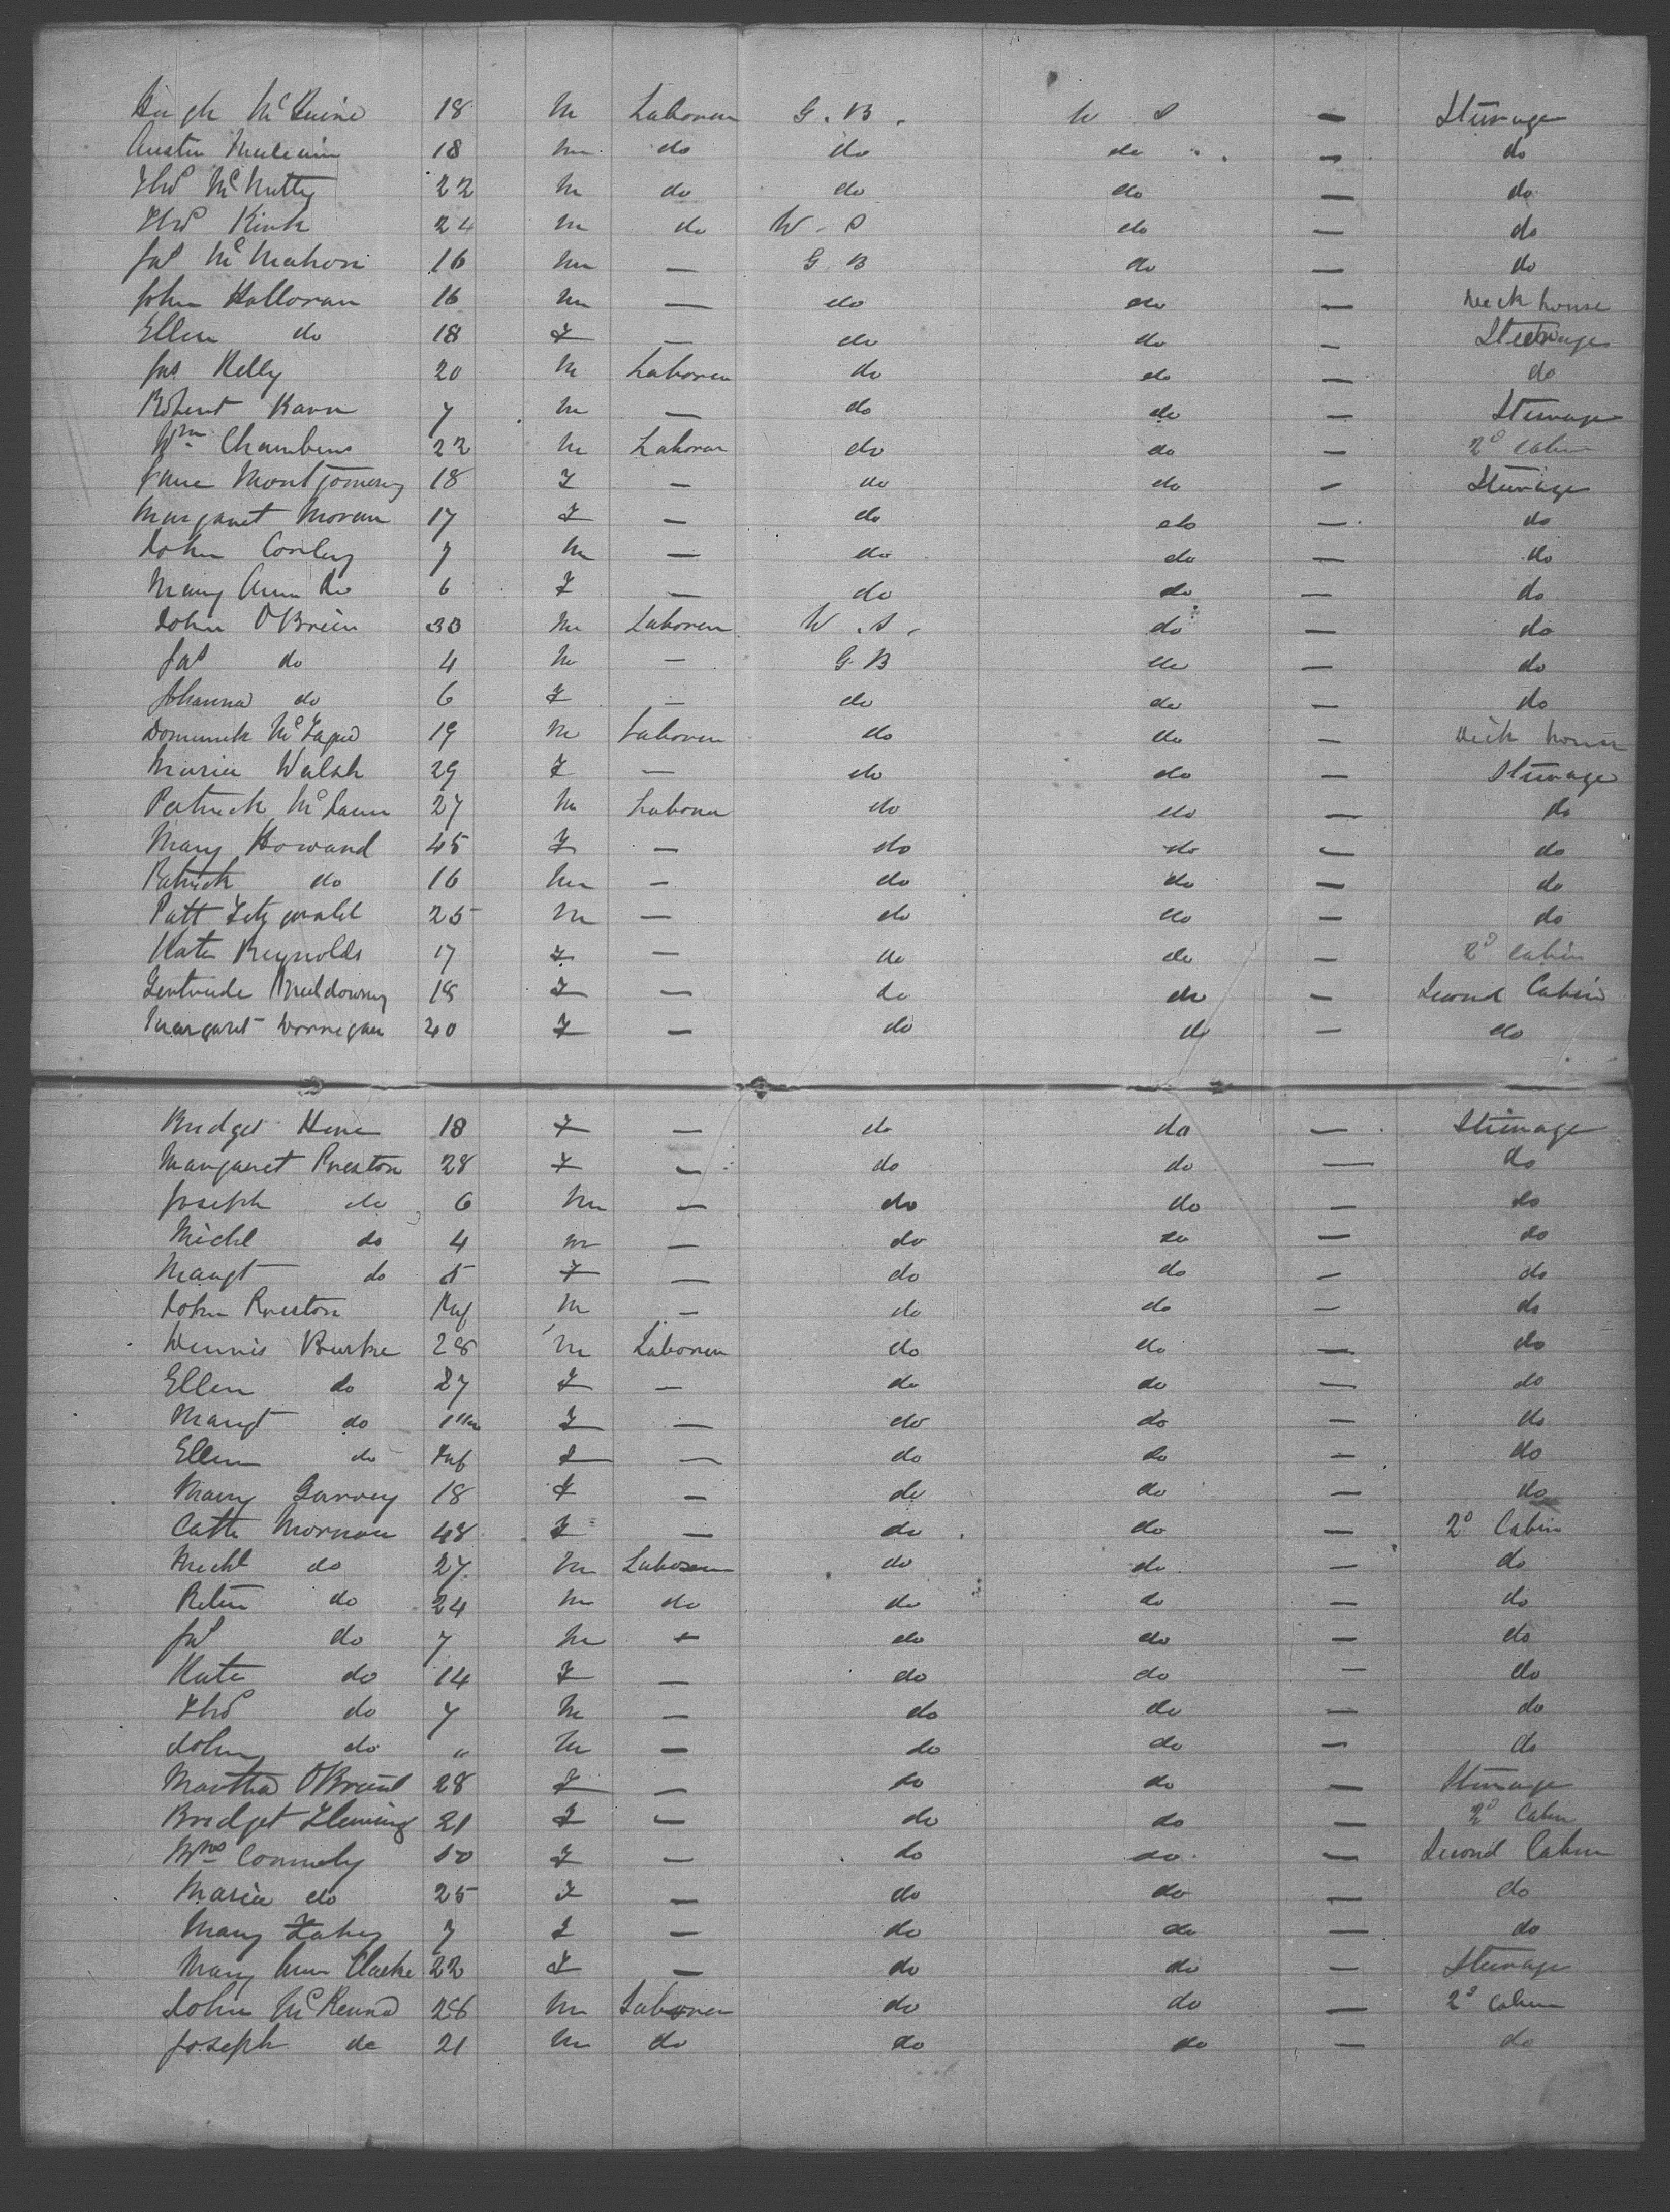 Hugh McGuire 18 M Laborer G.B. U S — Steerage
Austin 18 M do do do — do
Thos McNutty 22 M do do do — do
Thos Kirk 24 M do U.S do — do
Jas McMahon 16 M — G.B do — do
John Halloran 16 M — do do — Deck house
Ellen do 18 F — do do — Steerage
Jas Kelly 20 M Laborer do do — do
Robert Kavn 7 M — do do — Steerage
Wm Chambers 22 M Laborer do do — 2d Cabin
Jane Montgomery 18 F — do do — Steerage
Margaret Moran 17 F — do do — do
John Conley 7 M — do do — do
Mary Ann do 6 F — do do — do
John O'Brien 33 M Laborer U.S. do — do
Jas do 4 M — G.B do — do
Johanna do 6 F — do do — do
Dominick 19 M Laborer do do — Deck house
Maria Walsh 29 F — do do — Steerage
Patrick 27 M Laborer do do — do
Mary Howard 45 F — do do — do
Patrick do 16 M — do do — do
Patt Fitzgerald 25 M — do do — do
Kate Reynolds 17 F — do do — 2d Cabin
Gertrude Muldowny 18 F — do do — Second Cabin
Margaret Dornegan 20 F — do do — do
Bridget 18 F — do do — Steerage
Margaret Preston 28 F — do do — do
Joseph do 6 M — do do — do
Michl do 4 M — do do — do
Margt do 5 F — do do — do
John Preston Inf M — do do — do
Dennis Burke 28 M Laborer do do — do
Ellen do 27 F — do do — do
Margt do F — do do — do
Ellen do Inf F — do do — do
Mary Garvey 18 F — do do — do
Cath Mornan 48 F — do do — 2d Cabin
Michl do 27 M Laborer do do — do
Peter do 24 M do do do — do
Jas do 7 M — do do — do
Kate do 14 F — do do — do
Thos do 7 M — do do — do
John do " M — do do — do
Martha O'Brien 28 F — do do — Steerage
Bridget Fleming 21 F — do do — 2d Cabin
Mrs Connely 50 F — do do — Second Cabin
Maria do 25 F — do do — do
Mary Fahey 7 F — do do — do
Mary Ann Clarke 22 F — do do — Steerage
John McKenna 26 M Laborer do do — 2d Cabin
Joseph do 21 M do do do — do